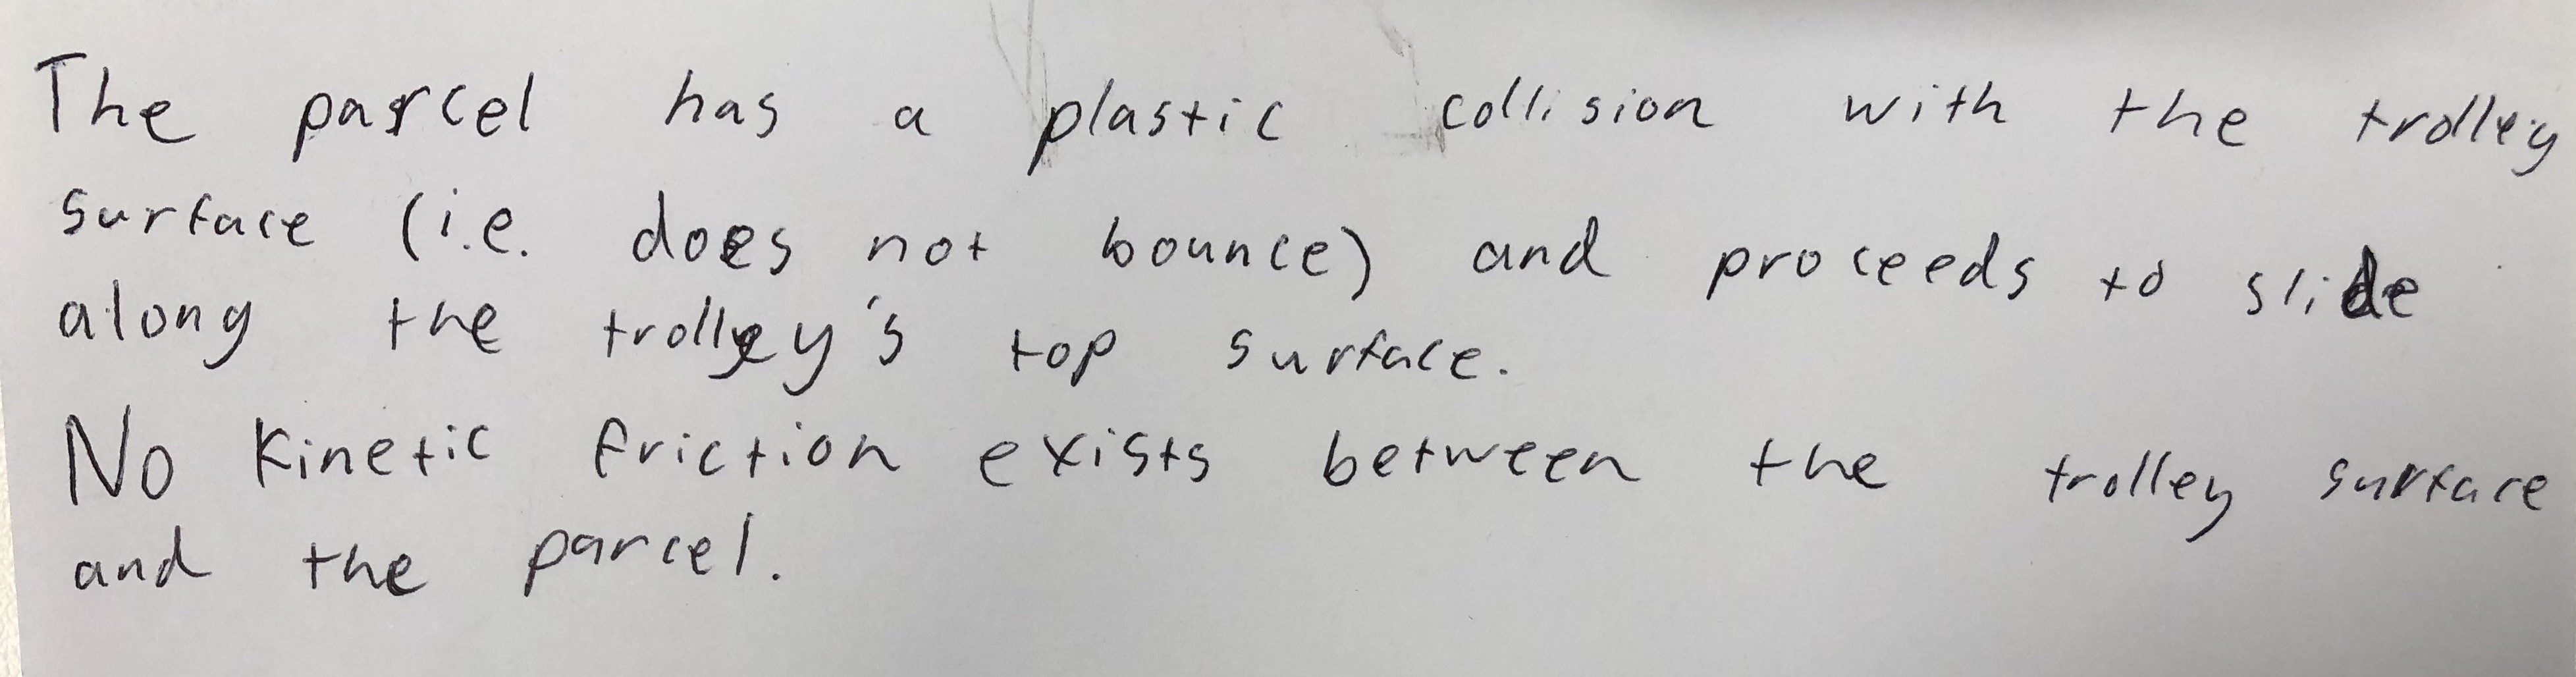 The parcel has a plastic collision with the trolley
surface (i.e. does not bounce) and proceeds to slide
along the trolley's top surface.
No kinetic friction exists between the trolley surface
and the parcel.